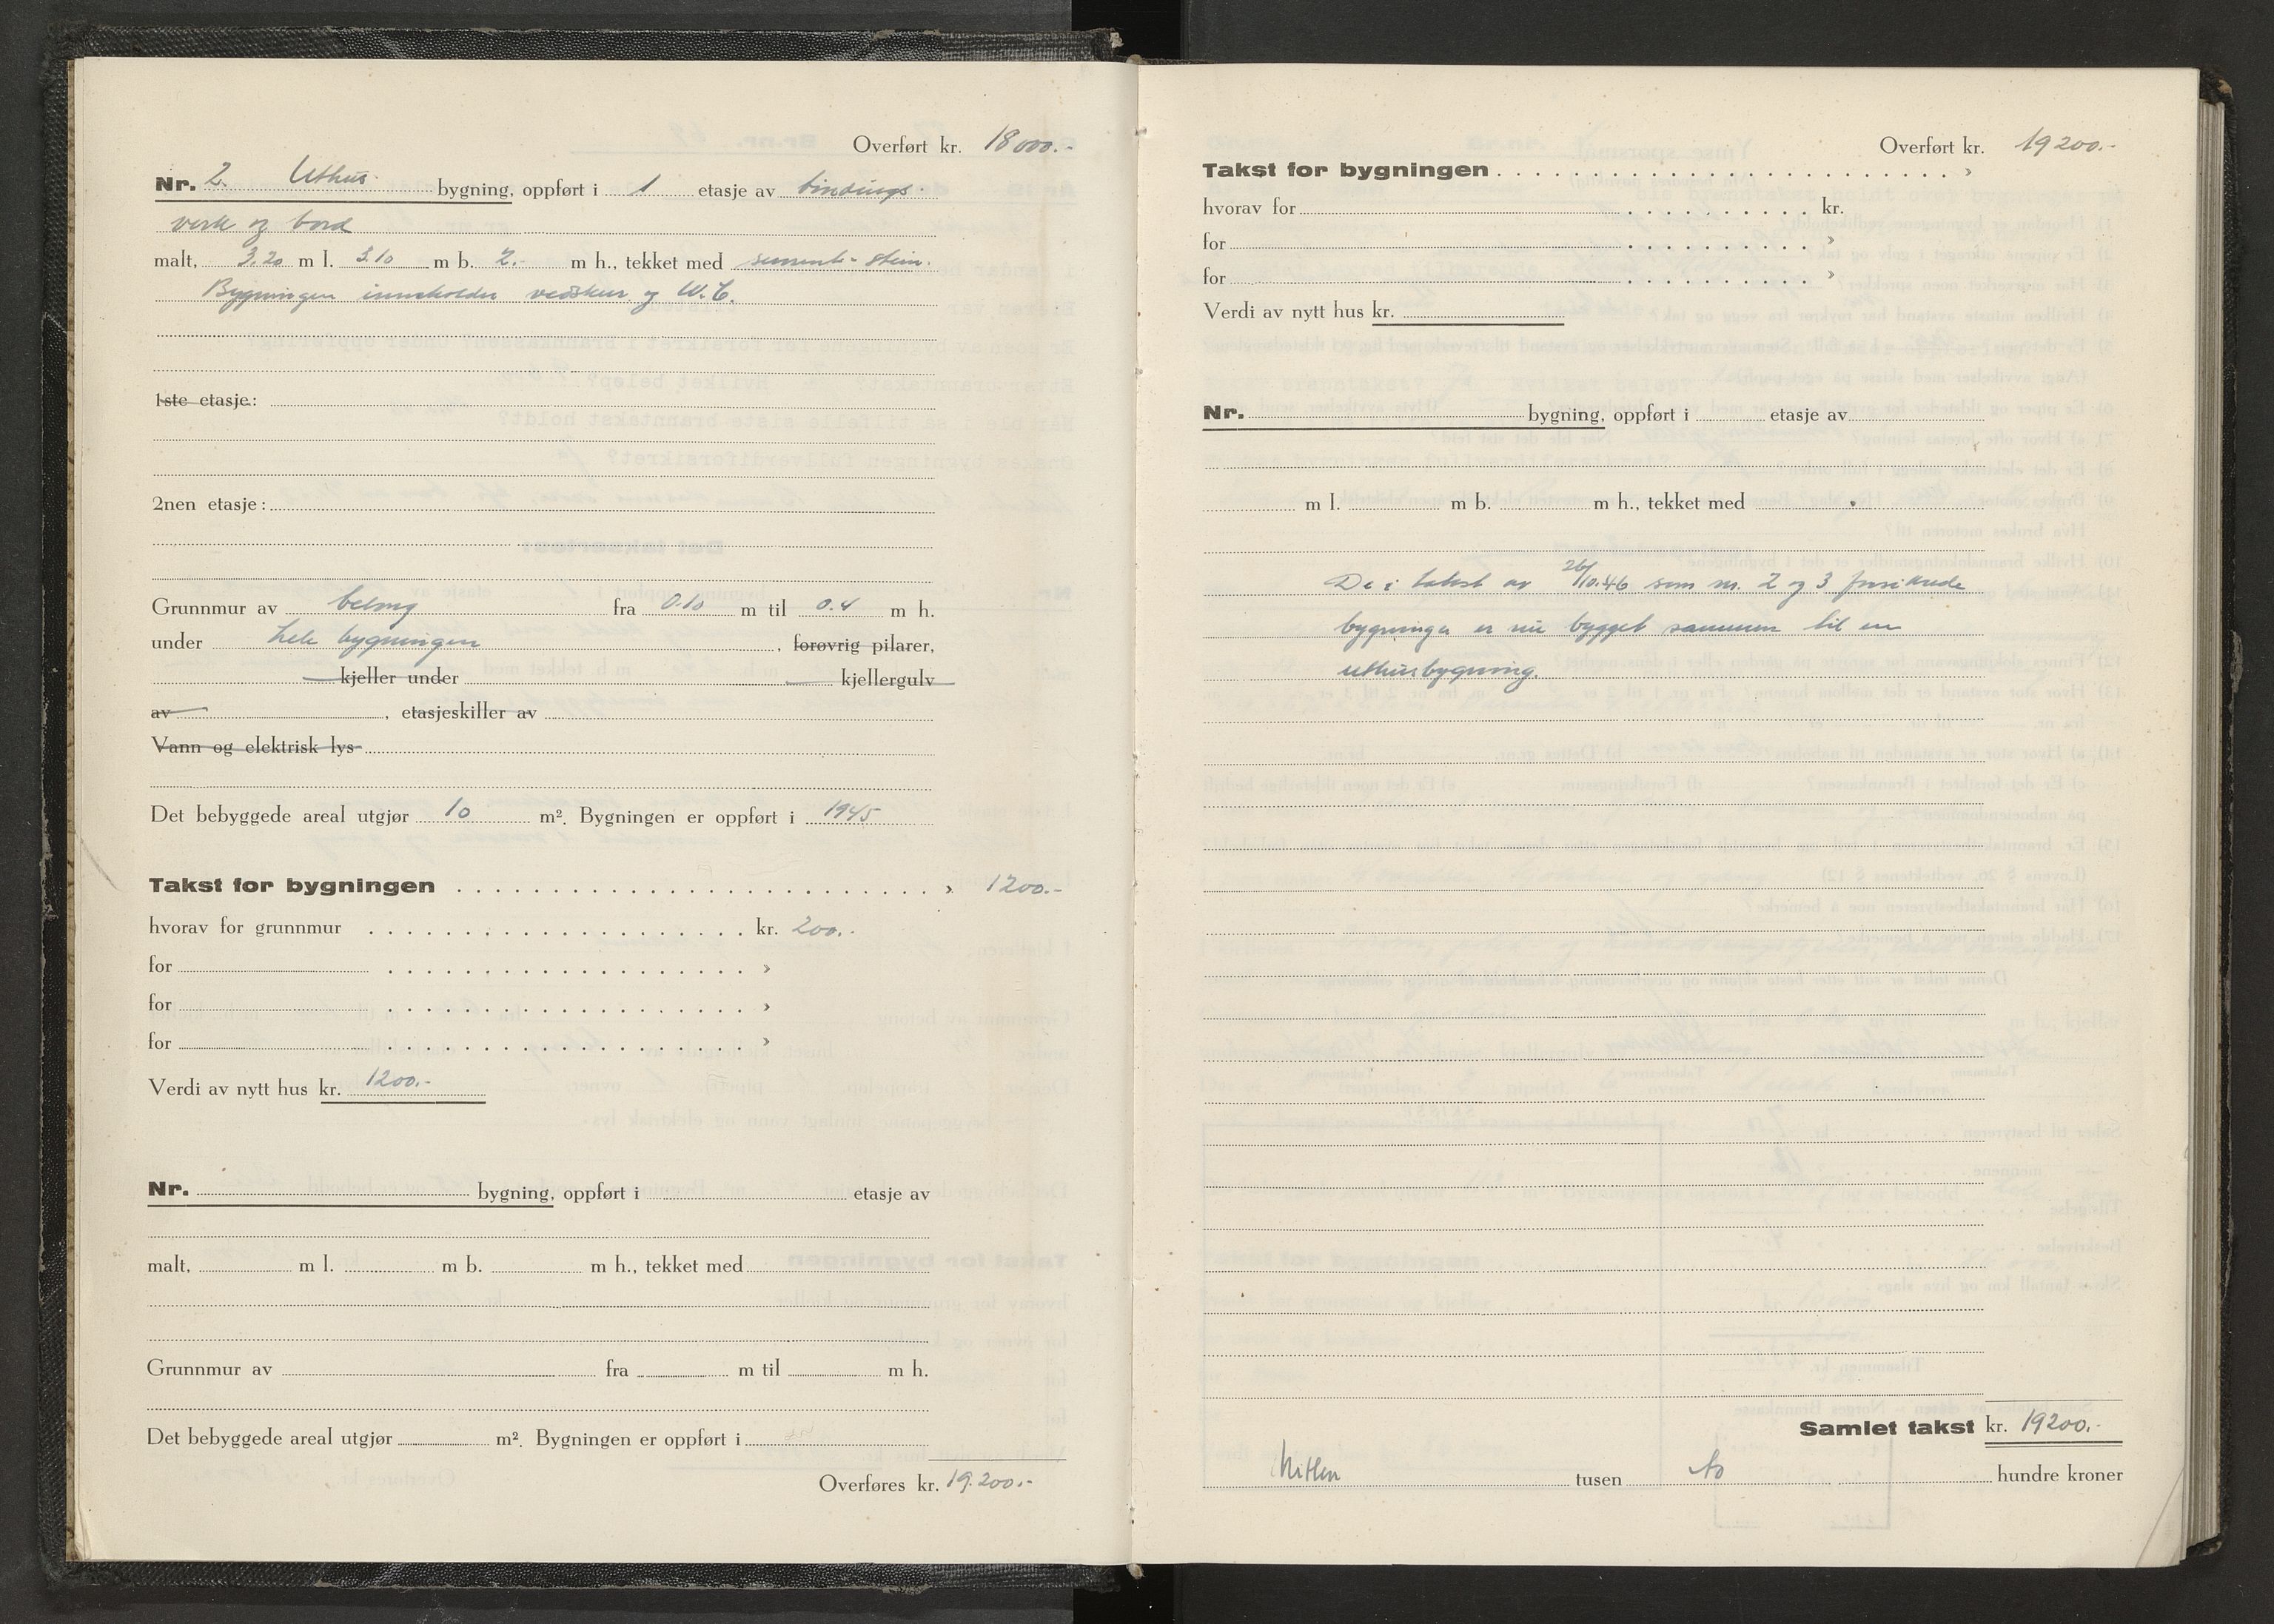 Overført kr. 18000.-
Nr. 2. Uthus bygning, oppført i 1 etasje av bindings-
verk og bord
malt, 3.20 m l. 3.10 m b. 2.- m h., tekket med sement-stein.
Bygningen inneholder vedskur og W.C.
1ste etasje:
2nen etasje:
Grunnmur av betong fra 0.10 m til 0.4 m h.
under hele bygningen, forøvrig pilarer,
kjeller under kjellergulv
av , etasjeskiller av
Vann og elektrisk lys
Det bebyggede areal utgjør 10 m². Bygningen er oppført i 1945
Takst for bygningen . . . » 1200.-
hvorav for grunnmur . . . kr. 200.-
for . . . »
for . . . »
for . . . »
Verdi av nytt hus kr. 1200.-
Nr. bygning, oppført i etasje av
malt, m l. m b. m h., tekket med
Grunnmur av fra m til m h.
Det bebyggede areal utgjør m². Bygningen er oppført i
Overføres kr. 19.200.-
Overført kr. 19200.-
Takst for bygningen . . . »
hvorav for . . . kr.
for . . . »
for . . . »
Verdi av nytt hus kr.
Nr. bygning, oppført i etasje av
m l. m b. m h., tekket med
De i takst av 26/10.46 som nr. 2 og 3 forsikrede
bygninger er nu bygget sammen til en
uthusbygning.
Samlet takst kr. 19200.-
Nitten tusen to hundre kroner